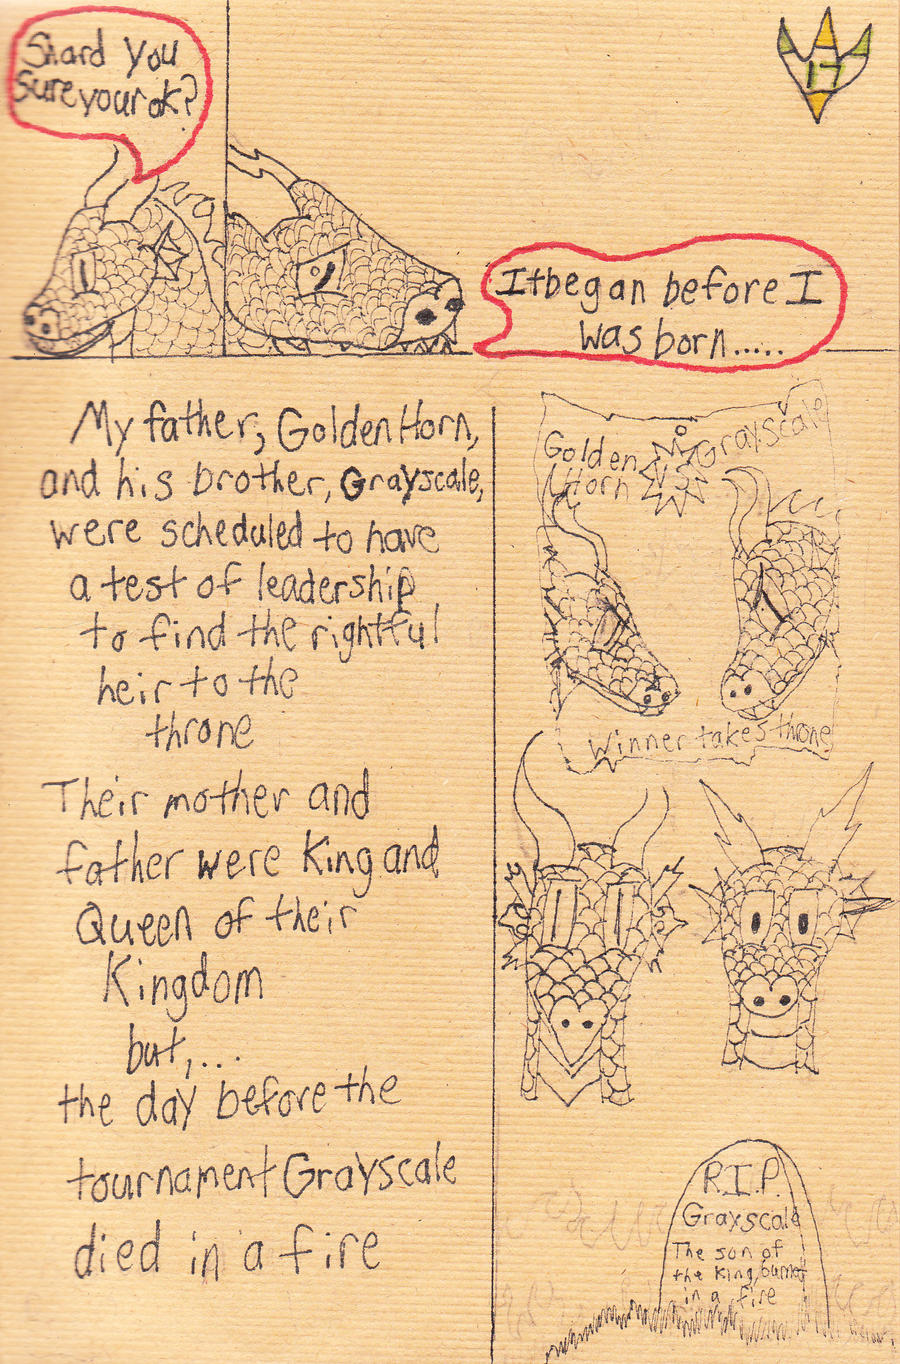 Shard you
sure your ok?
17
It began before I
was born.....
My father, Golden Horn,
and his brother, Grayscale,
were scheduled to have
a test of leadership
to find the rightful
heir to the
throne
Golden
Horn
VS
Grayscale
Winner takes throne
Their mother and
father were King and
Queen of their
Kingdom
but,...
the day before the
tournament Grayscale
died in a fire
R.I.P.
Grayscale
The son of
the King, burnt
in a fire